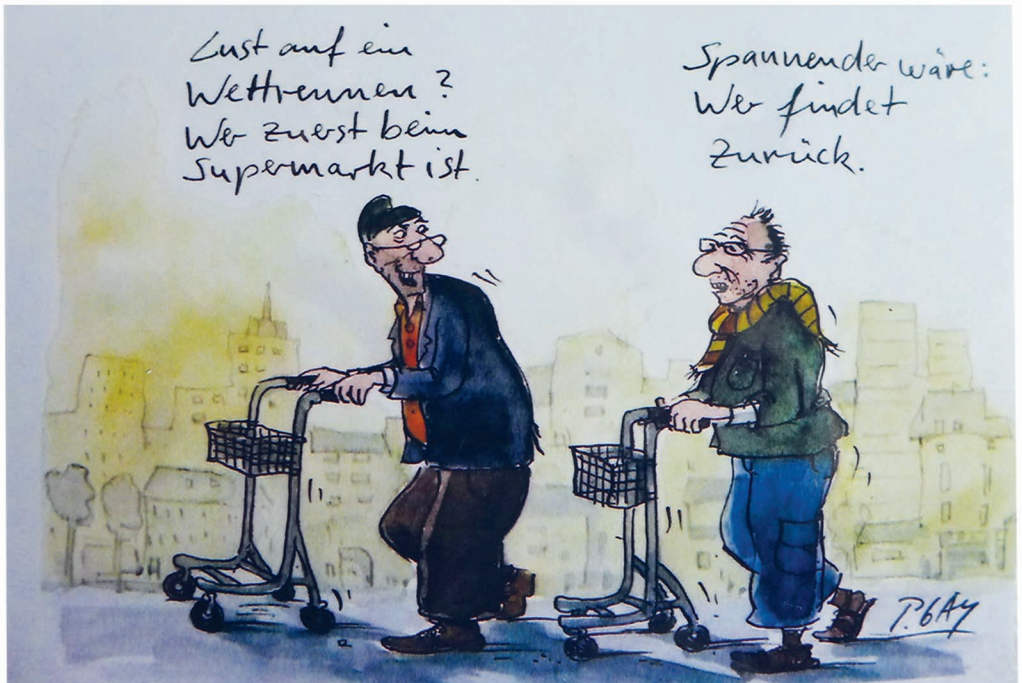 Lust auf ein
Wettrennen?
Wer zuerst beim
Supermarkt ist.
Spannender wäre:
Wer findet
zurück.
P. GAY